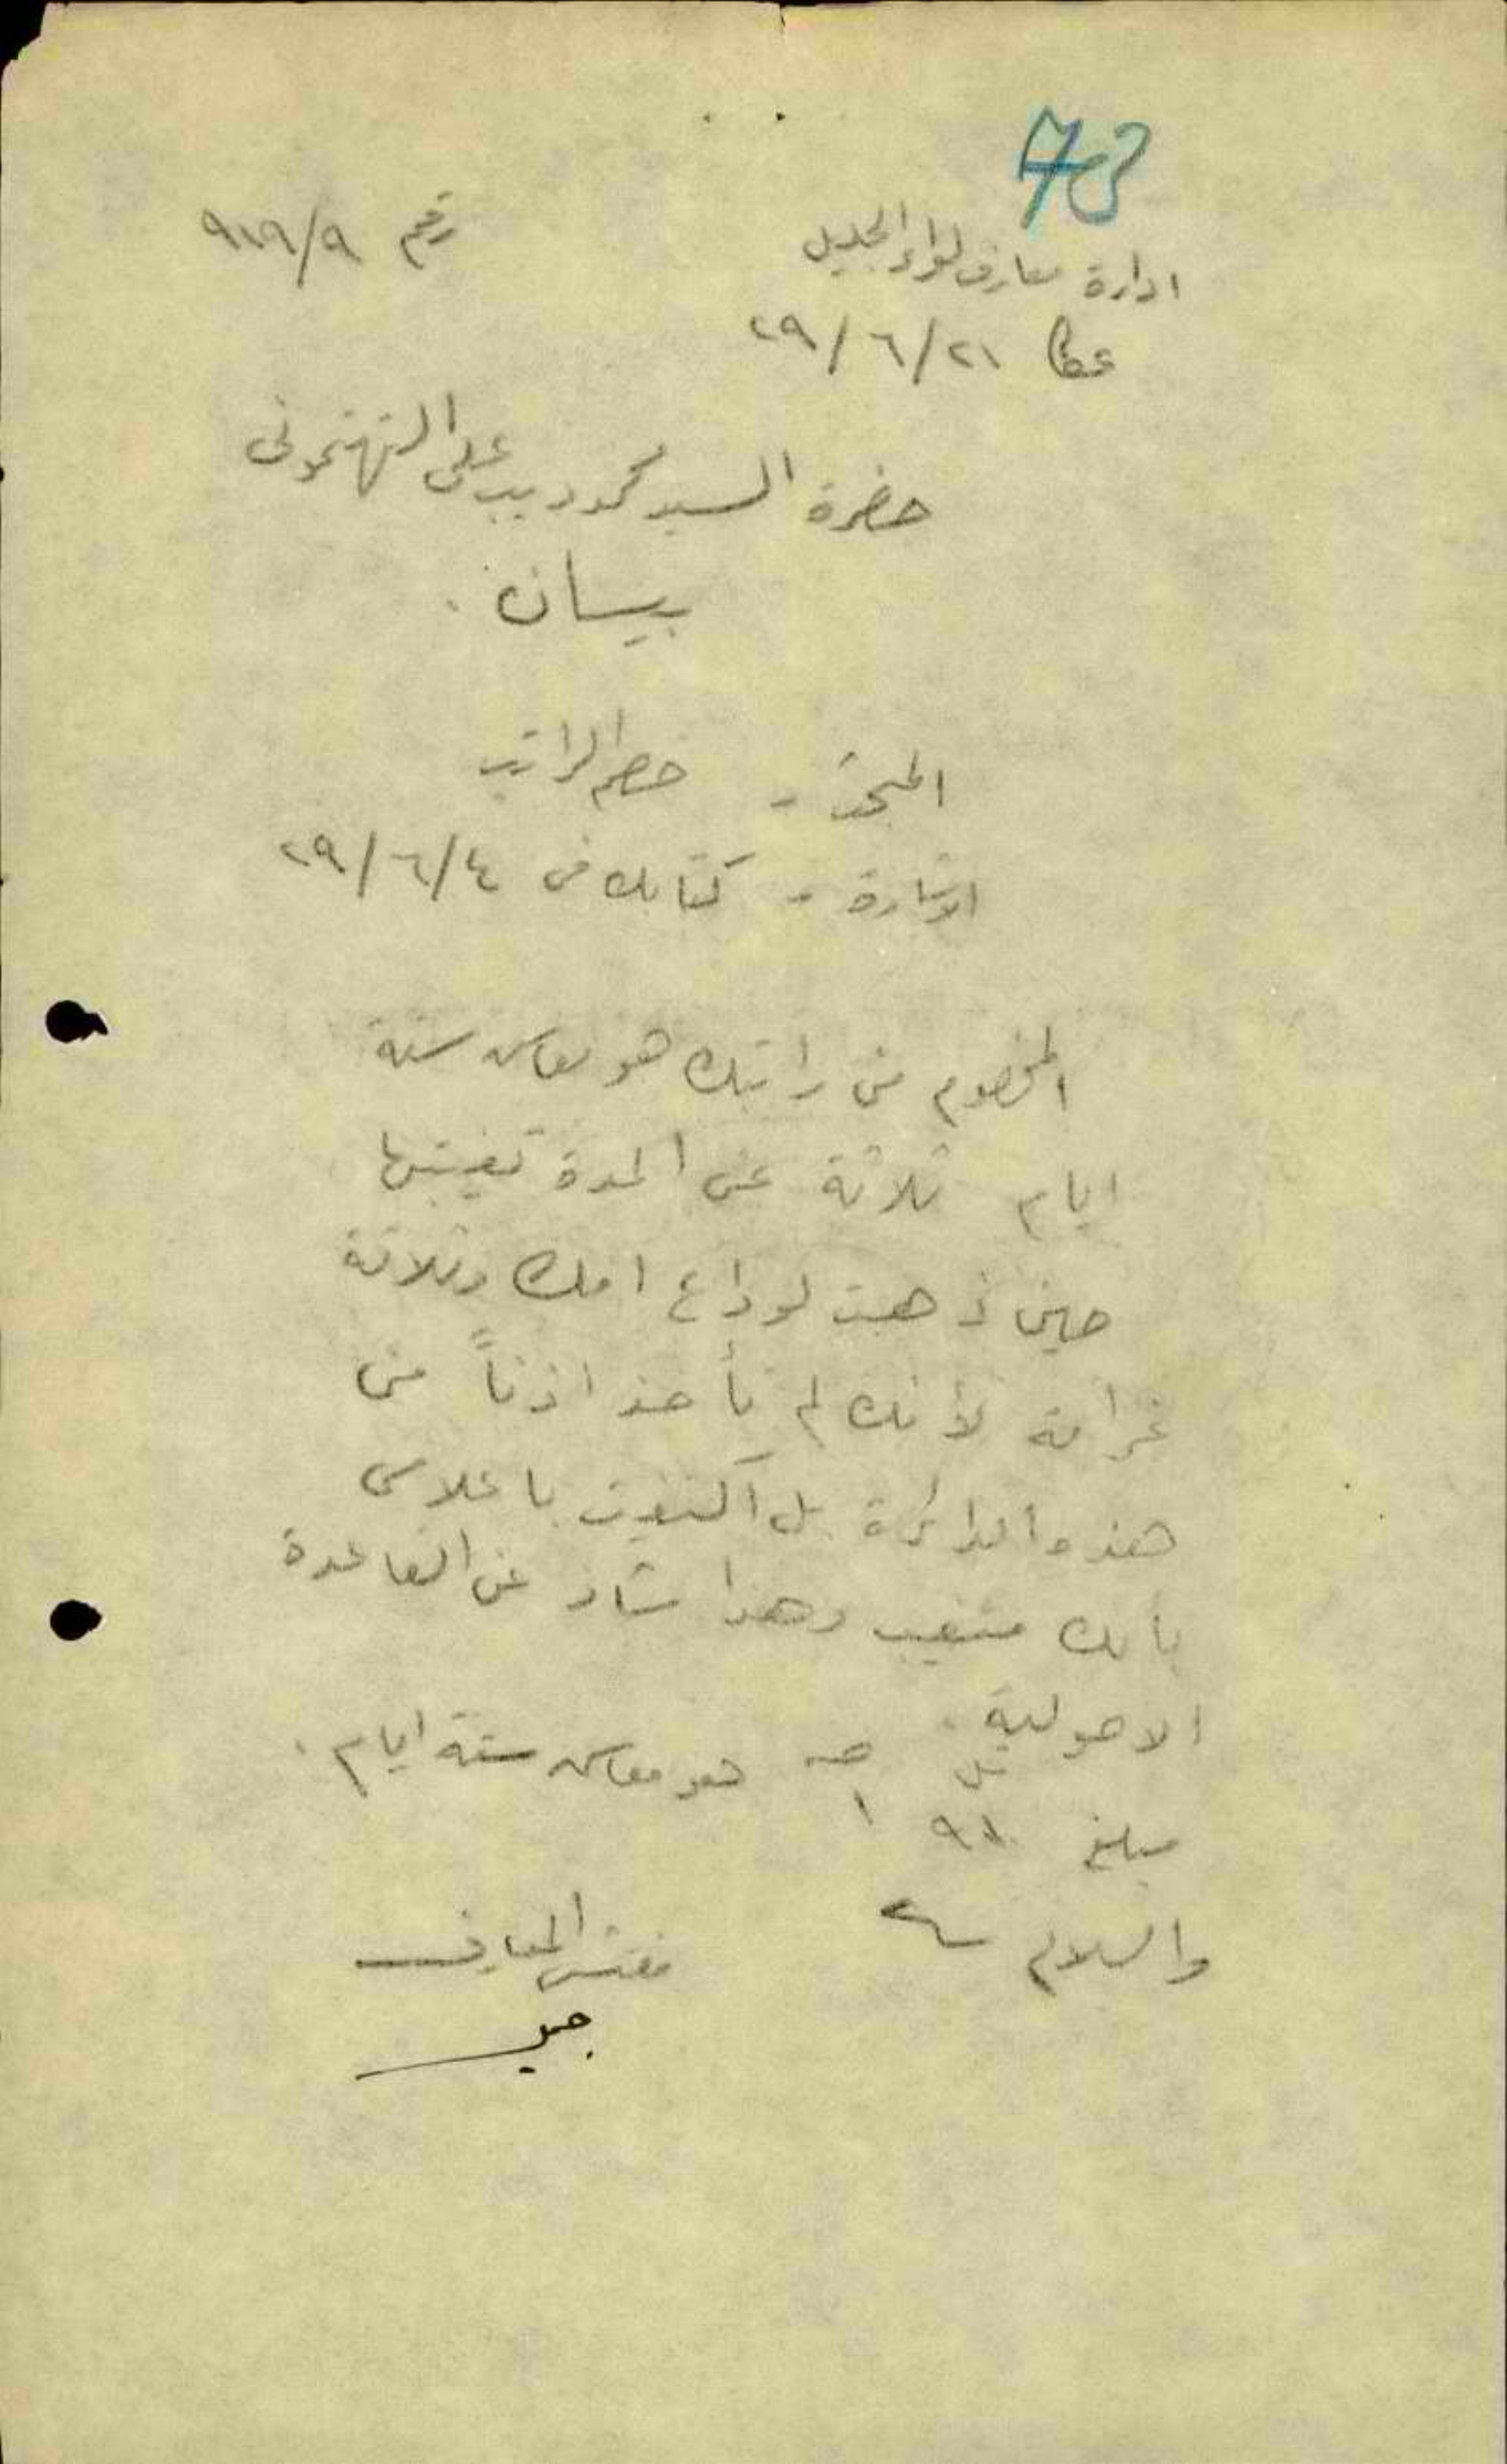 73
ادارة معارف لواء الجليل
رقم ٩١٩/٩
عكا ٢١/٦/٢٩
حضرة السيد محمود علي التهتموني
بيسان .
المبحث - خصم الراتب
الاشارة - كتابك في ٤/٦/٢٩
المخصوم من راتبك هو معاش ستة
ايام ثلاثة عن المدة تغيبتها
حين ذهبت لوداع امك وثلاثة
غرامة لأنك لم تأخذ اذناً من
هذه الدائرة بل اكتفيت باعلامي
بأنك متغيب وهذا شاذ عن القاعدة
الاصولية .
مبلغ هو معاش ستة ايام .
والسلام
مفتش المعارف